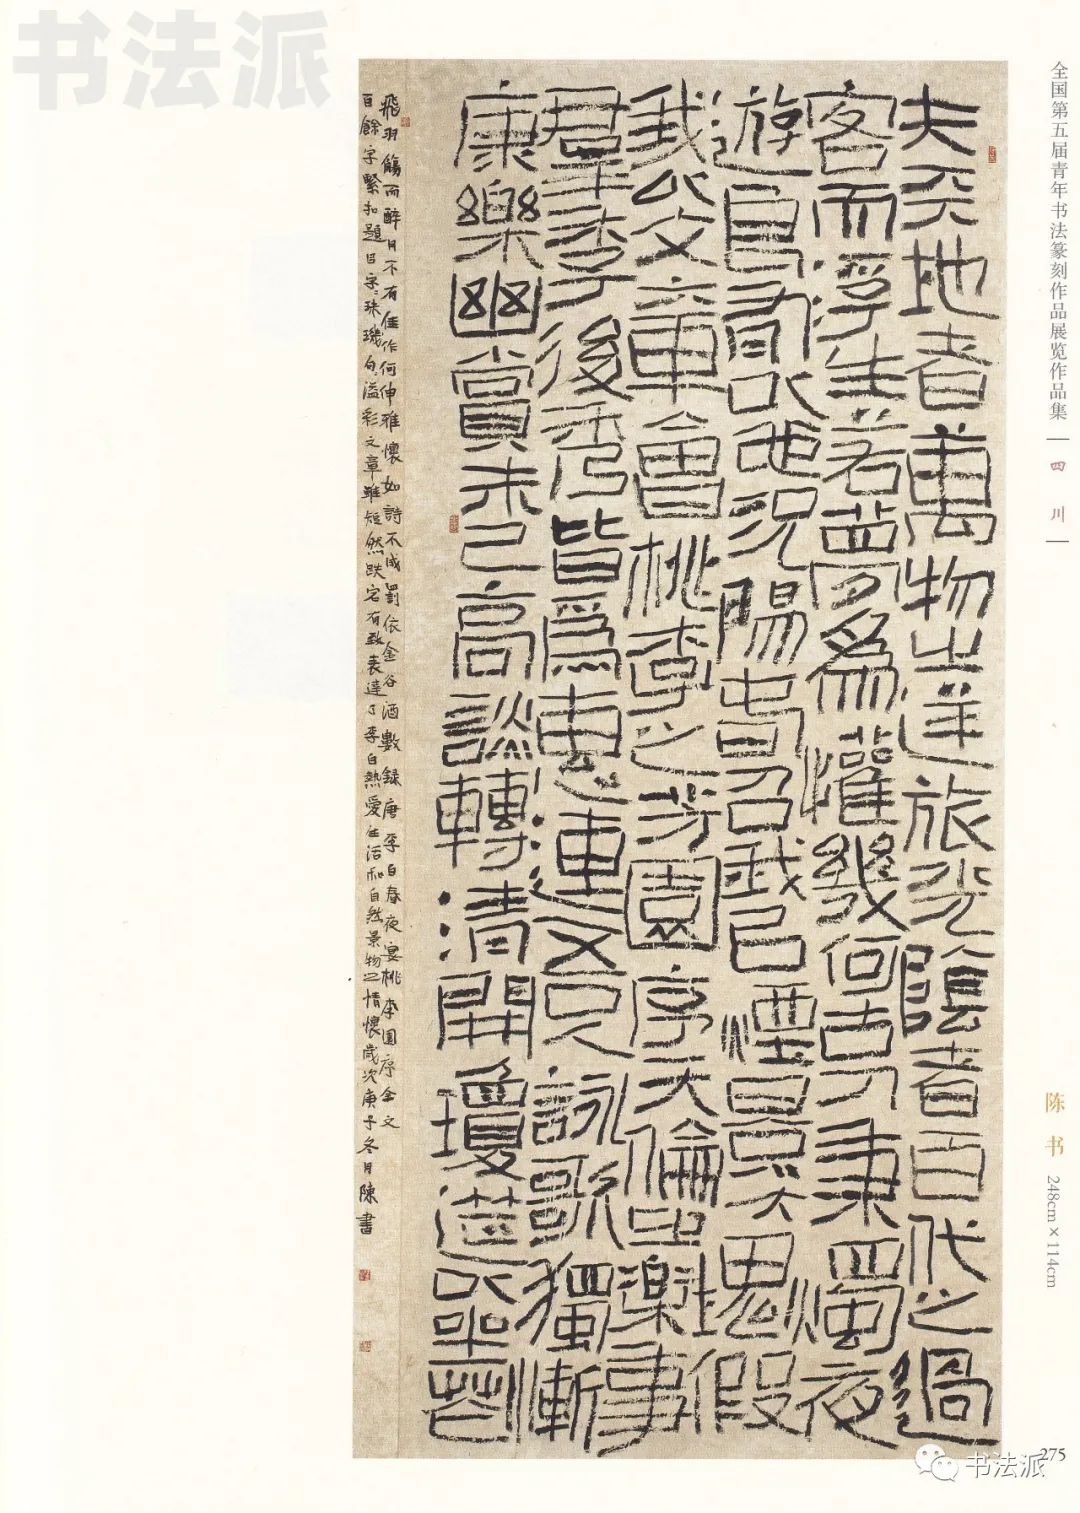 书法派
全国第五届青年书法篆刻作品展览作品集
四川
陈书
248cm×114cm
夫天地者萬物之逆旅光陰者百代之過
客而浮生若夢為懽幾何古人秉燭夜
遊良有以也況陽春召我以煙景大塊假
我以文章會桃李之芳園序天倫之樂事
羣季後秀皆為惠連吾人詠歌獨慚
康樂幽賞未已高談轉清開瓊筵以坐花
飛羽觴而醉月不有佳作何伸雅懷如詩不成罰依金谷酒數録唐李白春夜宴桃李園序全文
百餘字緊扣題目字〻珠璣句〻溢彩文章雖短然跌宕有致表達了李白熱愛生活和自然景物之情懷歲次庚子冬月陳書
275
书法派